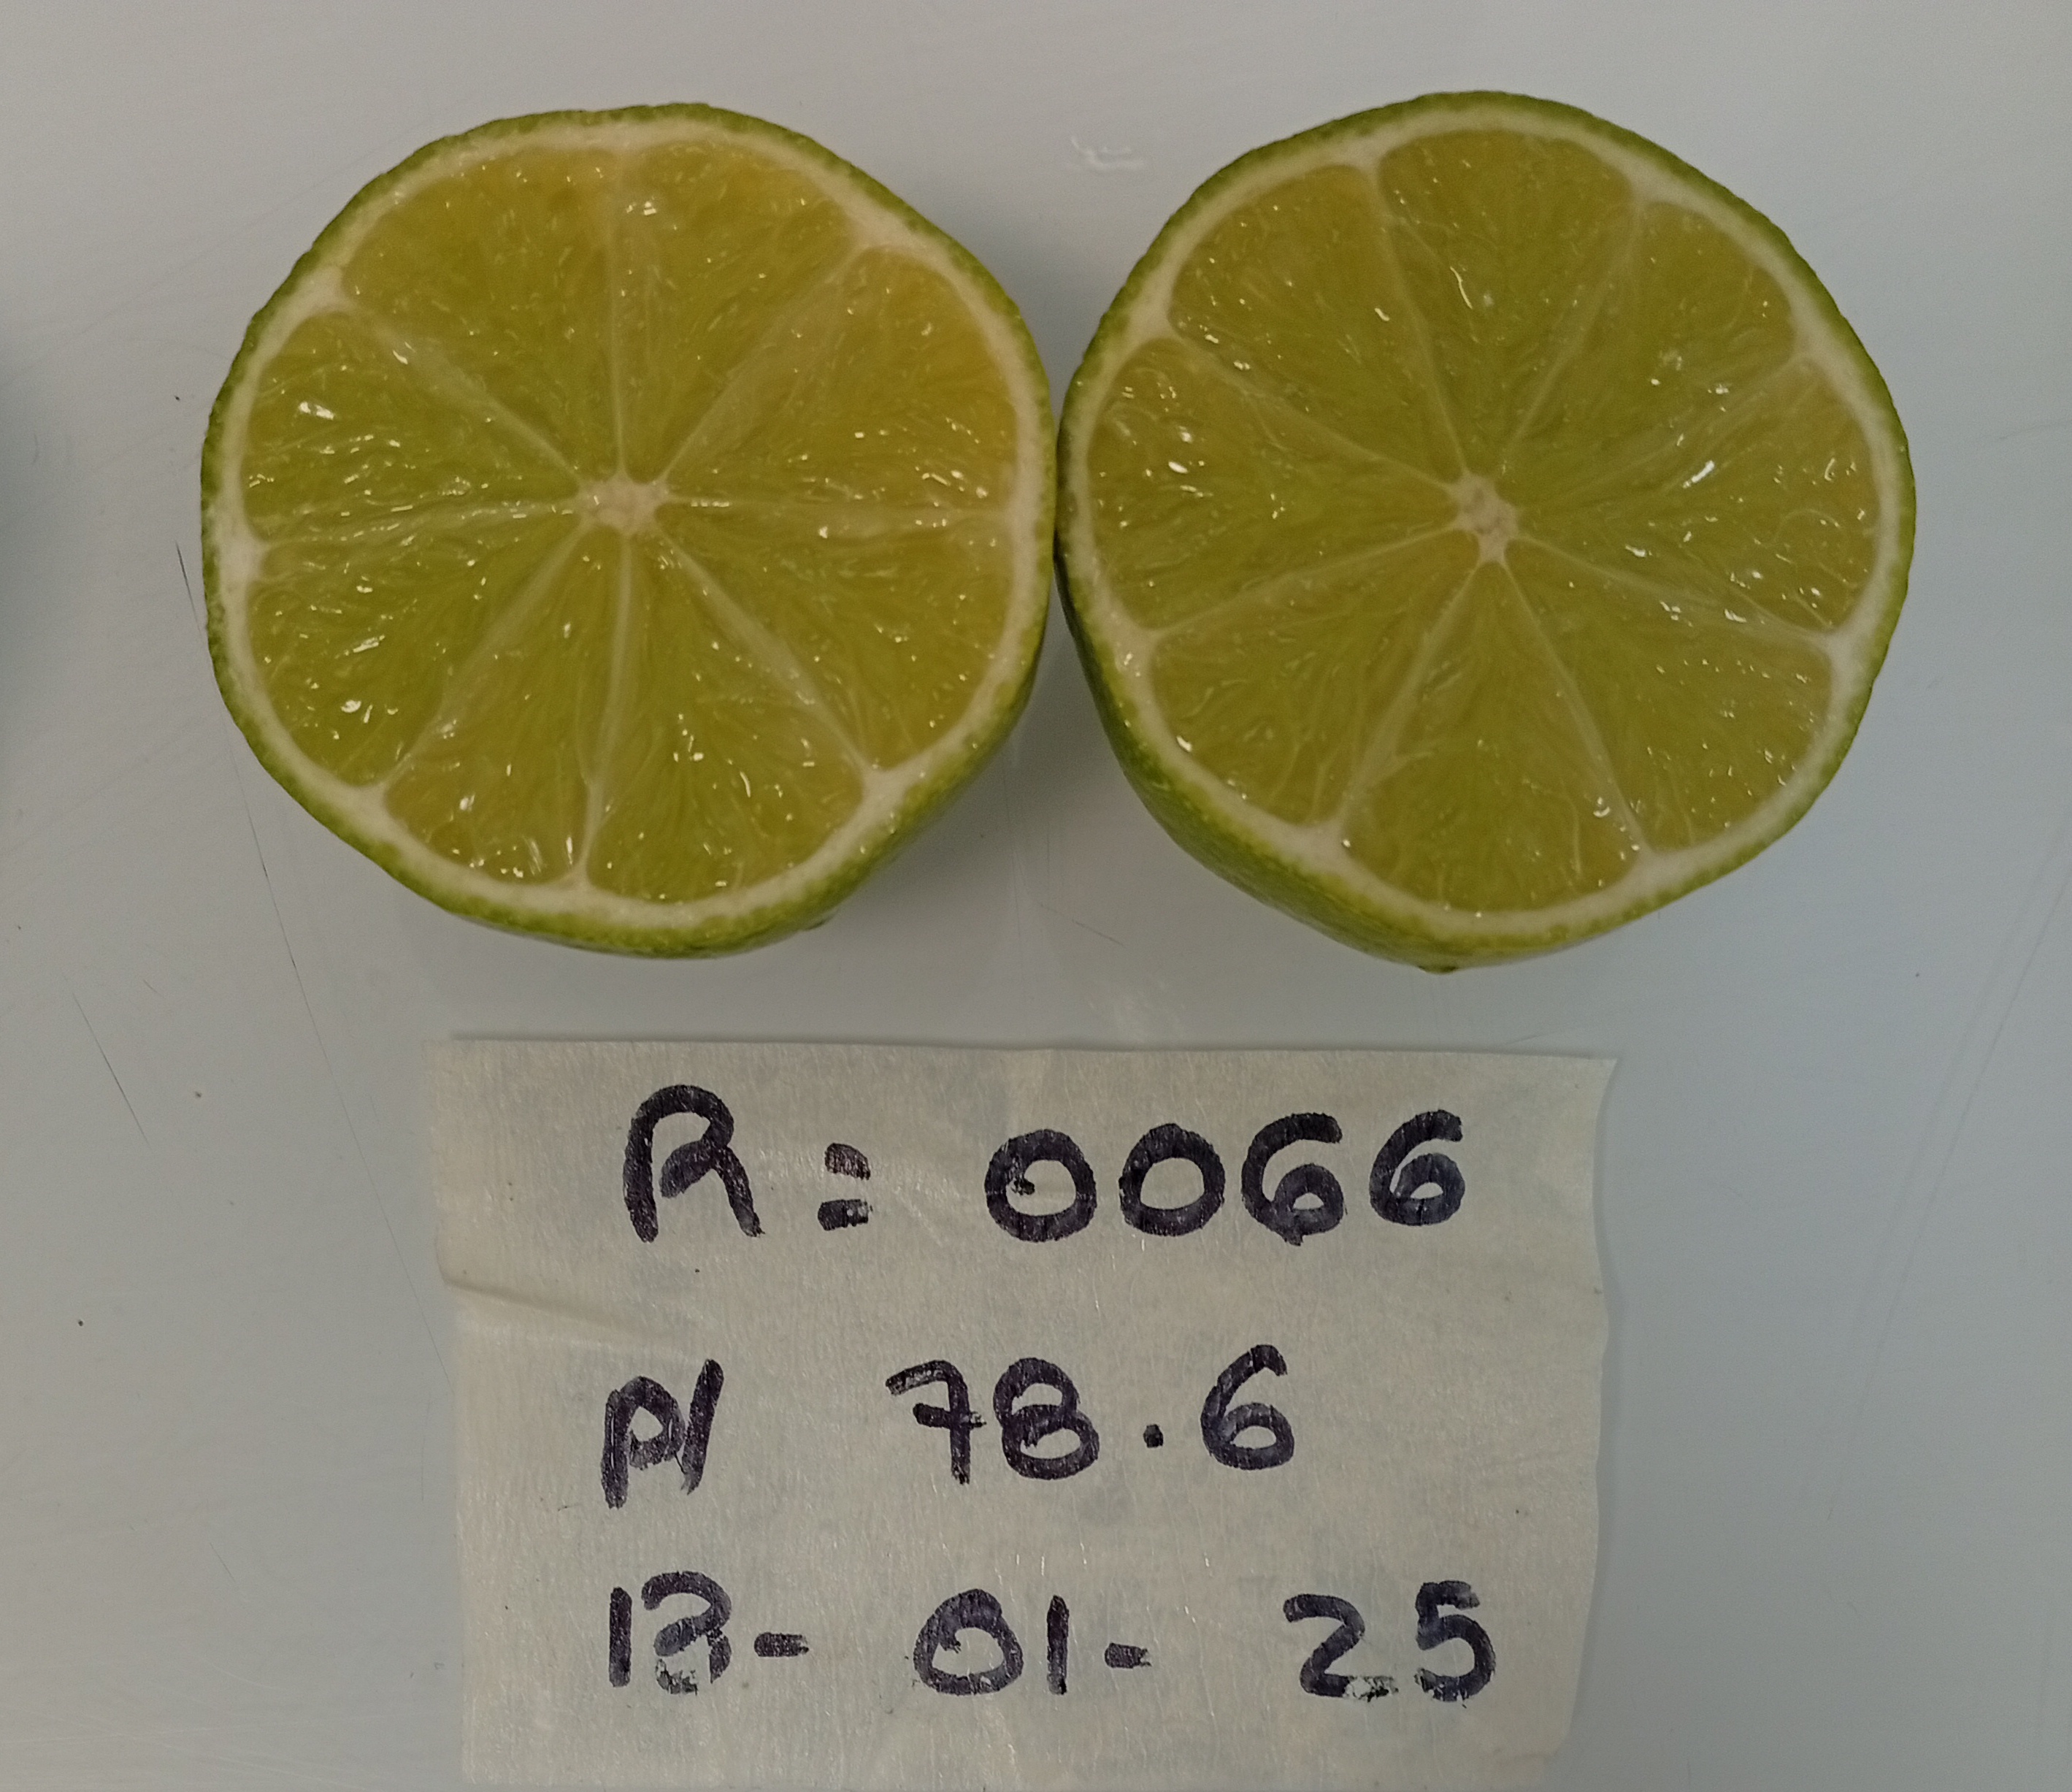 R: 0066
pl 78.6
13-01-25